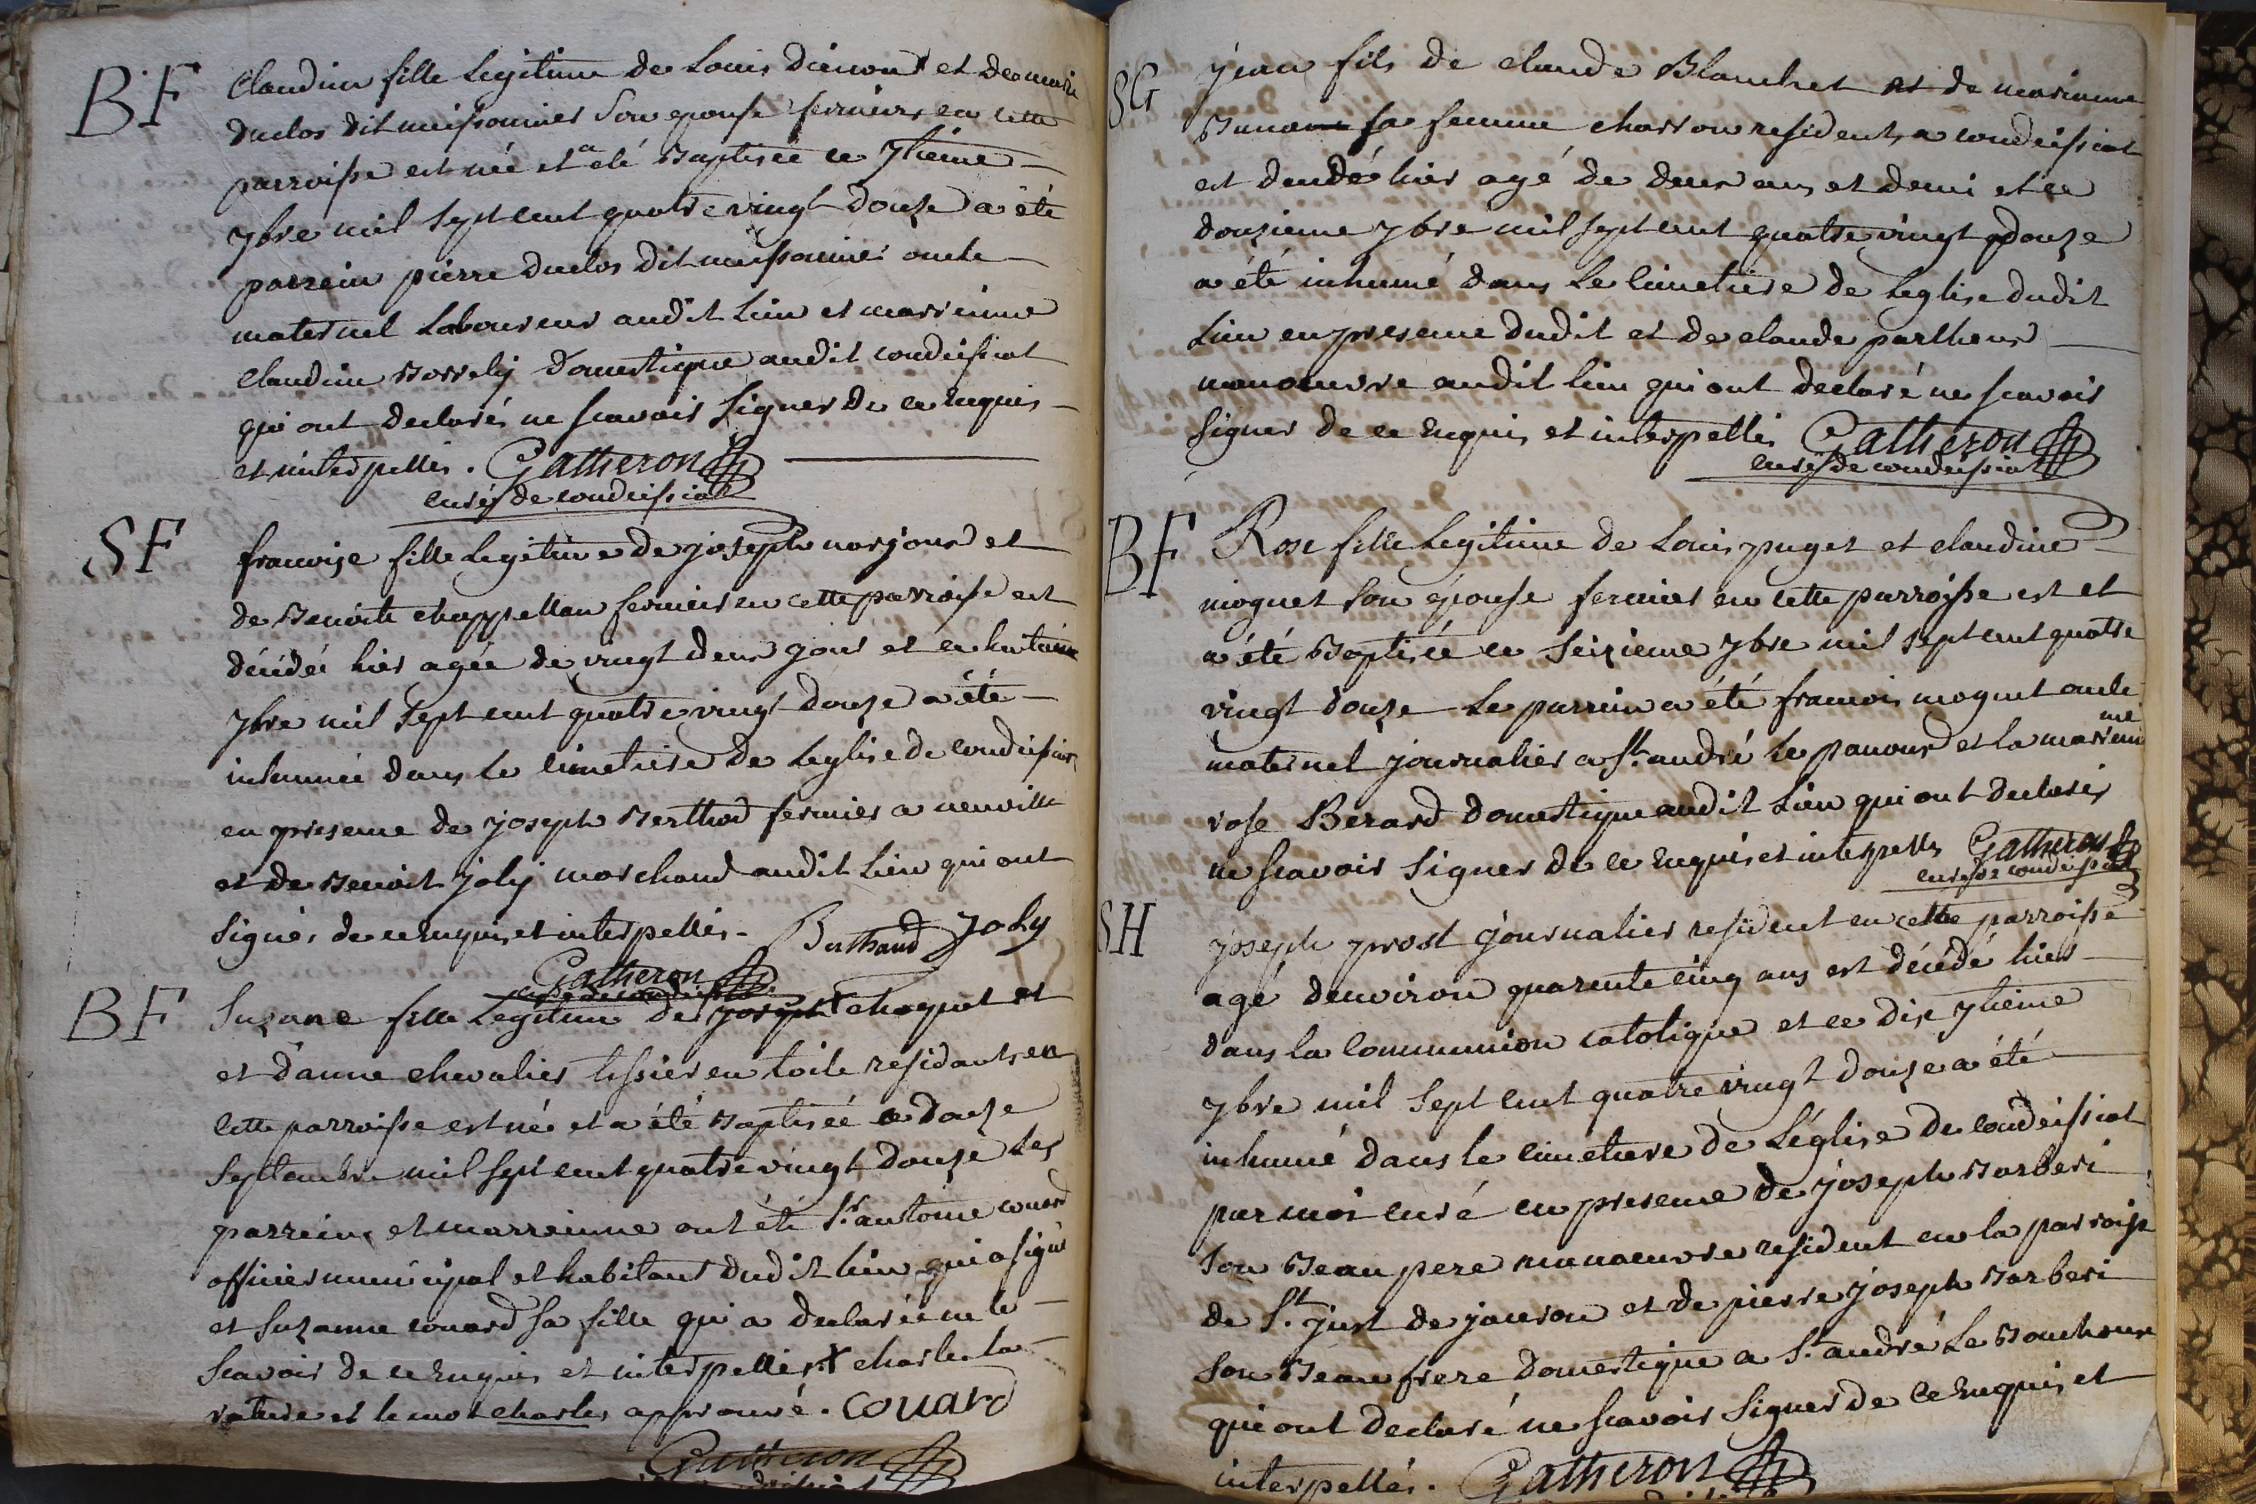 BF
Claudine fille Legitime de Louis et de marie
duclos dit meissonnier Son epouse fermiers en cette
parroisse est née et a eté Baptisée ce 7tieme
7bre mil sept cent quatre vingt douze a été
parrein pierre duclos dit meissonnier oncle
maternel Laboureur audit Lieu et marreinne
Claudine domestique audit condeissiat
qui ont declarés ne scavoir signer de ce enquis
et interpellés. Gatheron
curé de condeissiat
SF
francoise fille Legitime de joseph et
de Benoite chappellan fermiers en cette parroisse est
décédée hier agée de vingt deux jours et ce huitieme
7bre mil sept cent quatre vingt douze a été
inhumée dans le cimetiere de Leglise de condeissiat
en presence de joseph Berthod fermier a neuville
et de Benoit joly marchand audit Lieu qui ont
signés de ce enquis et interpellés. Berthaud Joly
Gatheron
curé de condeissiat
BF
Suzane fille Legitime de joseph + choquet et
et d'anne chevalier tissier en toile residants en
cette parroisse est née et a été Baptisée ce douze
septembre mil sept cent quatre vingt douze Les
parrein et marreinne ont été Sr antoine couard
officier municipal et habitant dudit Lieu qui a signé
et Suzanne couard sa fille qui a declarée ne le
scavoir de ce enquis et interpellés + charles la
rature et le mot charles approuvé. Couard
Gatheron
SG
jean fils de claude Blanchet et de marianne
sa femme charron resident a condeissiat
est decedé hier agé de deux ans et demi et ce
douzieme 7bre mil sept cent quatre vingt douze
a été inhumé dans Le Cimetiere de Leglise dudit
Lieu en presence dudit et de claude
manoeuvre audit lieu qui ont declaré ne scavoir
signer de ce enquis et interpellés Gatheron
curé de condeissiat
BF
Rose fille Legitime de Louis puget et claudine
moguet son epouse fermier en cette parroisse est et
a été Baptisée ce seizieme 7bre mil sept cent quatre
vingt douze Le parrein a été francois moguet oncle
maternel journalier a St. andré le panoux et la marenne
rose Berard domestique audit Lieu qui ont declarés
ne scavoir signer de ce enquis et interpellés Gatheron
curé de condeissiat
SH
joseph prost journalier resident en cette parroisse
agé denviron quarente cinq ans est décédé hier
dans la Communion catolique et ce dix 7tieme
7bre mil sept cent quatre vingt douze a été
inhumé dans le cimetiere de L'église de condeissiat
par moi curé en presence de joseph Barberi
son Beau pere manoeuvre resident en la parroisse
de St. just de et de pierre joseph Barberi
son Beau frere domestique a St. andré Le Bouchoux
qui ont declaré ne scavoir signer de ce enquis et
interpellés. Gatheron